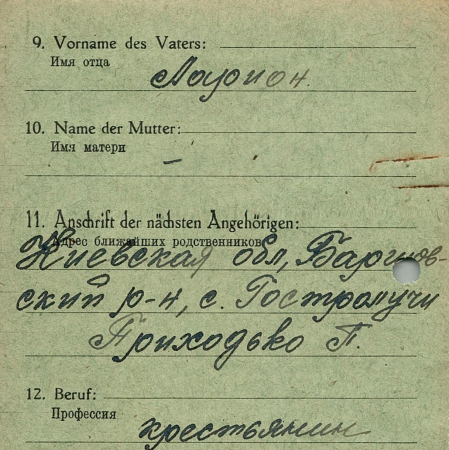 9. Vorname des Vaters:
Имя отца
Ларион.
10. Name der Mutter:
Имя матери
–
11. Anschrift der nächsten Angehörigen:
Адрес ближайших родственников
Киевская обл, Баришов-
ский р-н, с. Гостролучи
Приходько П.
12. Beruf:
Профессия
крестьянин